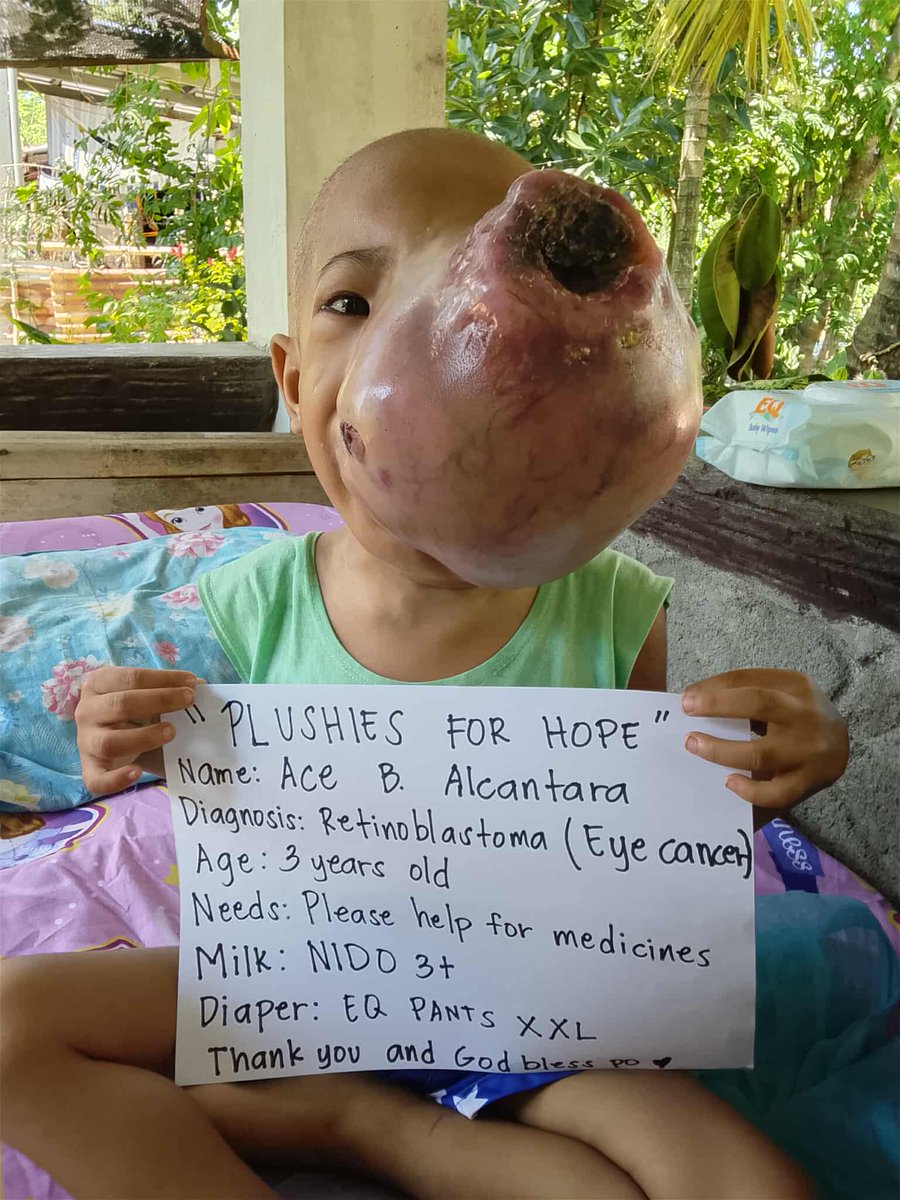 "PLUSHIES FOR HOPE"
Name: Ace B. Alcantara
Diagnosis: Retinoblastoma (Eye cancer)
Age: 3 years old
Needs: Please help for medicines
Milk: NIDO 3+
Diaper: EQ PANTS XXL
Thank you and God bless po ♥
EQ
Baby Wipes